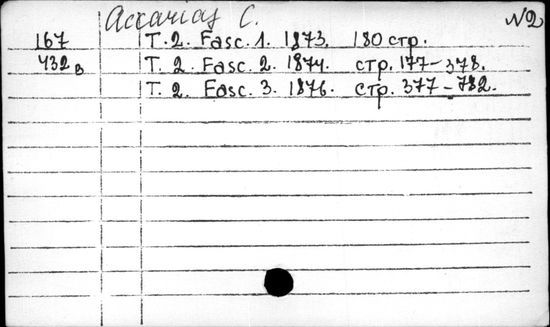 Accarias C. N2
167 T. 2. Fasc. 1. 1873. 180 стр.
432в T. 2. Fasc. 2. 1874. стр. 177-378.
T. 2. Fasc. 3. 1876. стр. 377-782.